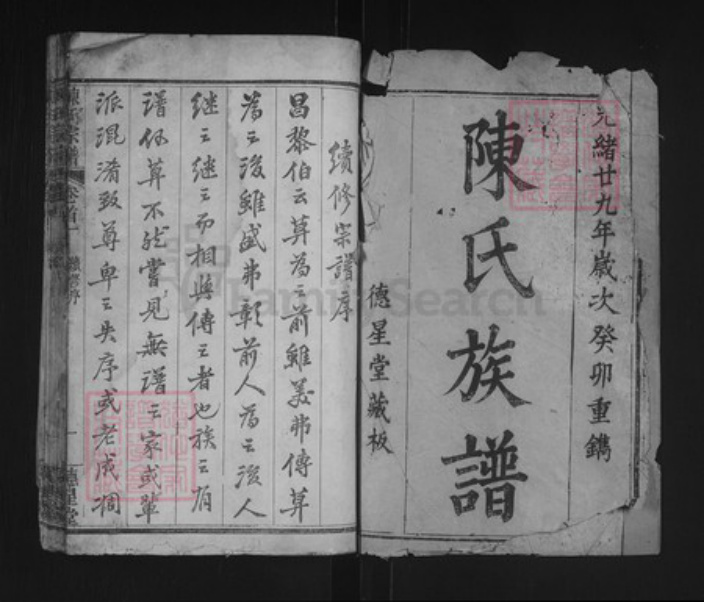 光緒廿九年歲次癸卯重鐫
陳氏族譜
德星堂藏板
續修宗譜序
昌黎伯云莫為之前雖美弗傳莫
為之後雖盛弗彰前人為之後人
繼之繼之而相與傳之者也族之有
譜何莫不然嘗見無譜之家或輩
派混淆致尊卑之失序或老成凋
陳氏宗譜
卷首
續修序
一
德星堂
FamilySearch